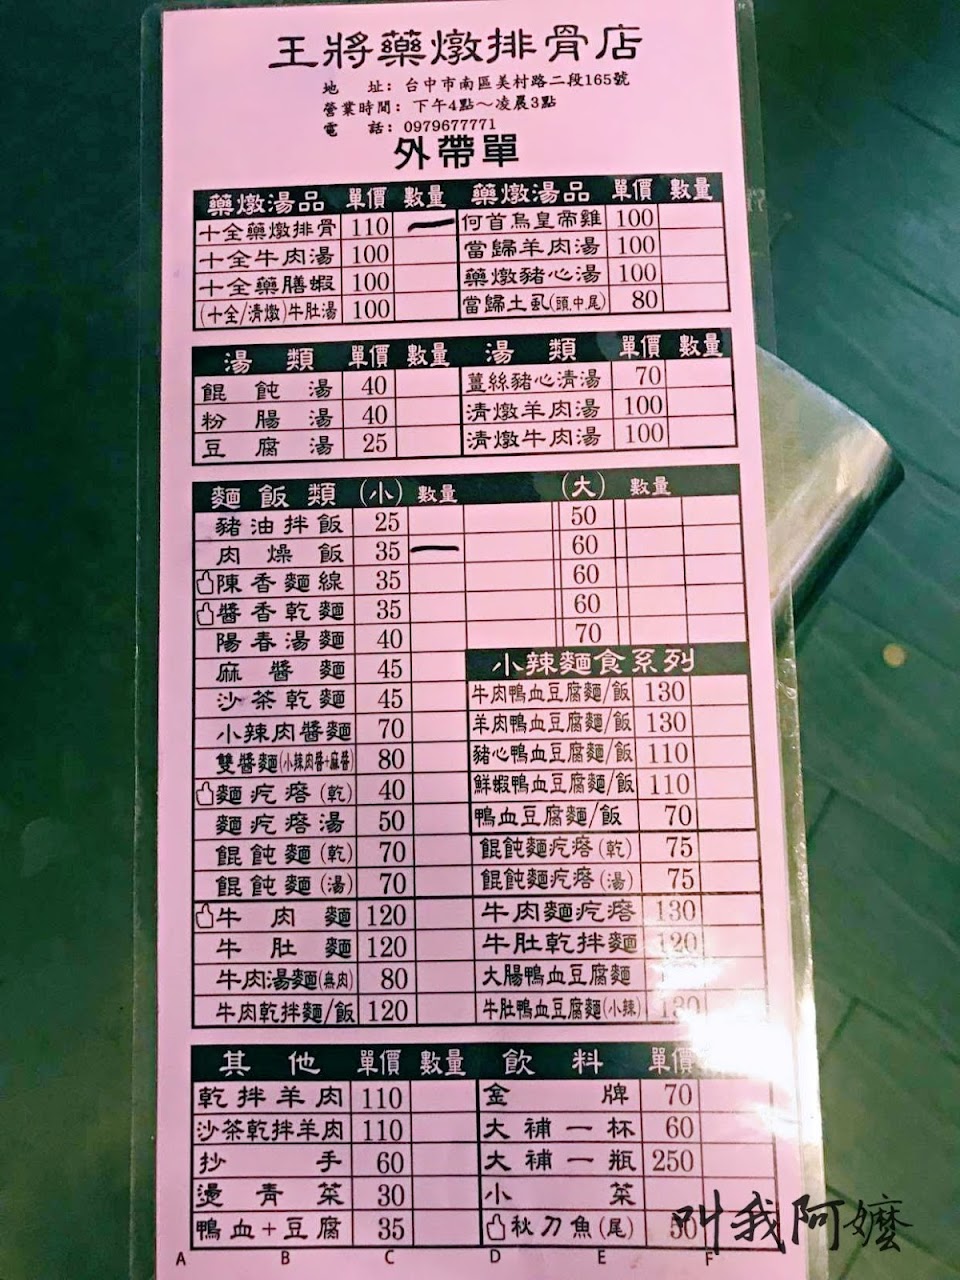 王將藥燉排骨店
地 址: 台中市南區美村路二段165號
營業時間: 下午4點～凌晨3點
電 話: 0979677771
外帶單
藥燉湯品 單價 數量 藥燉湯品 單價 數量
十全藥燉排骨 110 一 何首烏皇帝雞 100
十全牛肉湯 100 當歸羊肉湯 100
十全藥膳蝦 100 藥燉豬心湯 100
(十全/清燉)牛肚湯 100 當歸土虱(頭.中.尾) 80
湯類 單價 數量 湯類 單價 數量
餛飩湯 40 薑絲豬心清湯 70
粉腸湯 40 清燉羊肉湯 100
豆腐湯 25 清燉牛肉湯 100
麵飯類 (小) 數量 (大) 數量
豬油拌飯 25 50
肉燥飯 35 一 60
陳香麵線 35 60
醬香乾麵 35 60
陽春湯麵 40 70
麻醬麵 45 小辣麵食系列
沙茶乾麵 45 牛肉鴨血豆腐麵/飯 130
小辣肉醬麵 70 羊肉鴨血豆腐麵/飯 130
雙醬麵(小辣肉醬+麻醬) 80 豬心鴨血豆腐麵/飯 110
麵疙瘩(乾) 40 鮮蝦鴨血豆腐麵/飯 110
麵疙瘩湯 50 鴨血豆腐麵/飯 70
餛飩麵(乾) 70 餛飩麵疙瘩(乾) 75
餛飩麵(湯) 70 餛飩麵疙瘩(湯) 75
牛肉麵 120 牛肉麵疙瘩 130
牛肚麵 120 牛肚乾拌麵 120
牛肉湯麵(無肉) 80 大腸鴨血豆腐麵
牛肉乾拌麵/飯 120 牛肚鴨血豆腐麵(小辣) 130
其他 單價 數量 飲料 單價
乾拌羊肉 110 金牌 70
沙茶乾拌羊肉 110 大補一杯 60
抄手 60 大補一瓶 250
燙青菜 30 小菜
鴨血+豆腐 35 秋刀魚(尾) 50
A B C D E F
叫我阿嬤